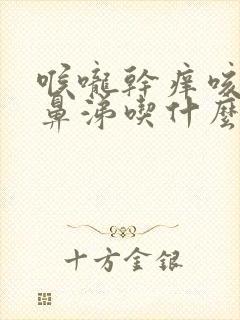 喉嚨幹癢咳
鼻涕喫什麼
十方金銀